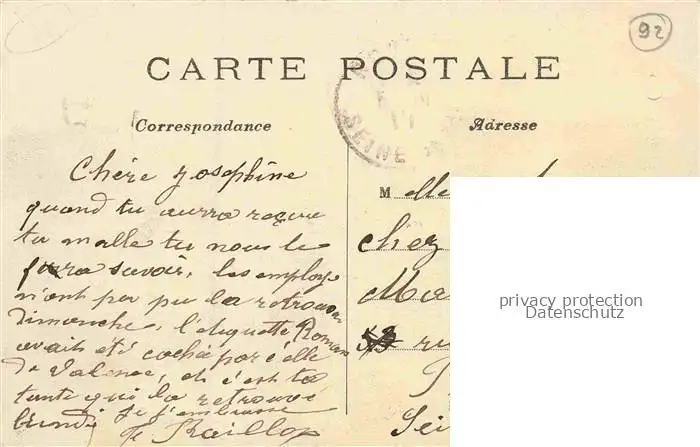 92
CARTE POSTALE
SEINE
Correspondance
Adresse
Chère Josephine
quand tu aurra reçue
ta malle tu nous le
fera savoir, les employe
n'ont par pu la retrouver
dimanche, l'etiquette Romans
avait été cachée par celle
de Valence, et c'est ta
tante qui la retrouvé
lundi Je t'embrasse
M elle
chez
Ma
ru
privacy protection
Datenschutz